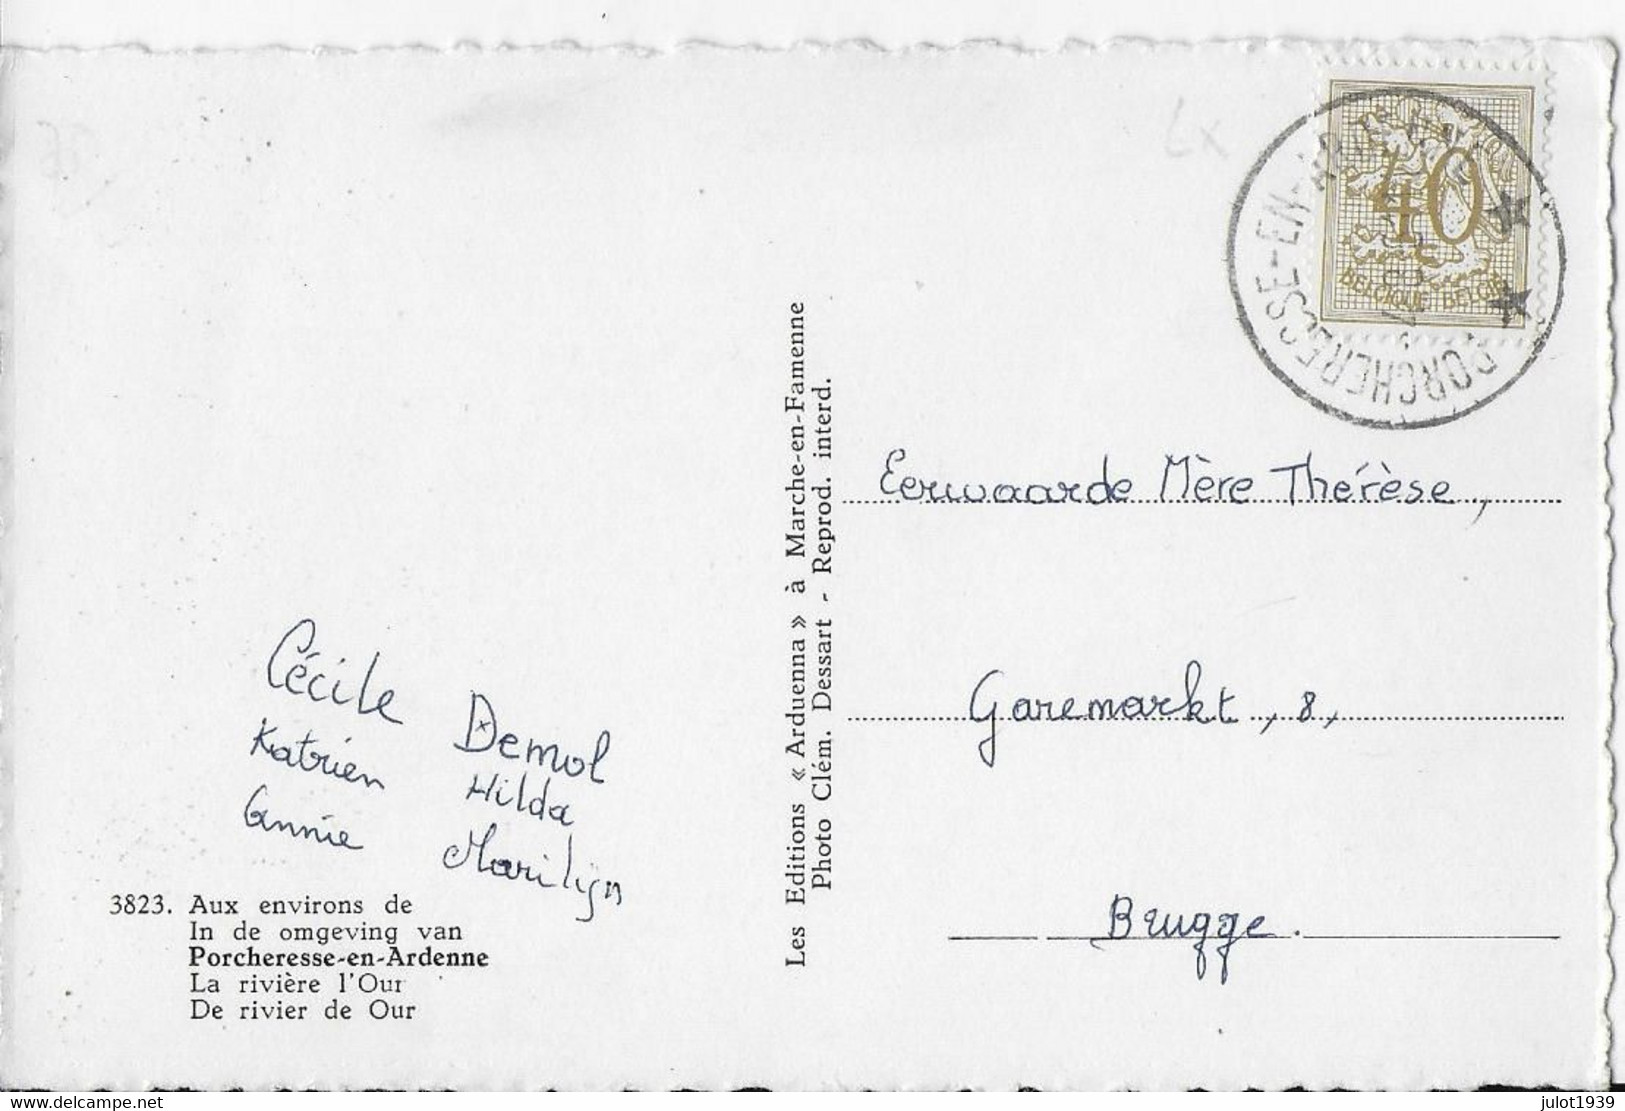 40
BELGIQUE BELGIE
PORCHERESSE-EN-ARDENNE
Les Editions « Arduenna » à Marche-en-Famenne
Photo Clém. Dessart - Reprod. interd.
Eerwaarde Mère Thérèse,
Garemarkt, 8,
Brugge.
Cécile Demol
Katrien Hilda
Annie Marilijn
3823. Aux environs de
In de omgeving van
Porcheresse-en-Ardenne
La rivière l'Our
De rivier de Our
www.delcampe.net
julot1939